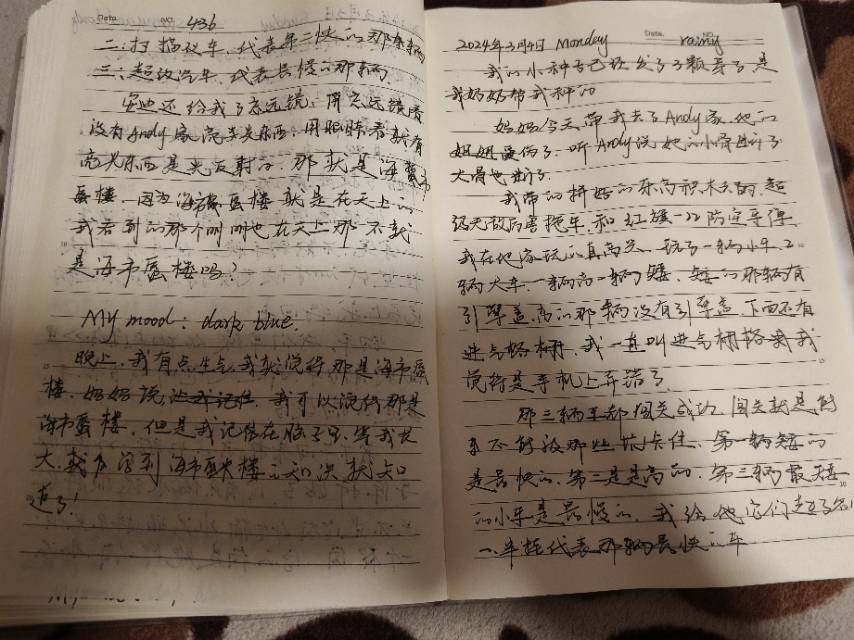 Date. NO. 436
二:扫描仪车,代表第二快的那辆
三:超级汽车,代表最慢的那辆
他还给我了望远镜,用望远镜看
没有Andy家亮光东西,用眼睛看就有
亮光东西是光反射的,那就是海市
蜃楼,因为海市蜃楼就是在天上的
我看到的那个 也在天上那不就
是海市蜃楼吗?
My mood: dark blue.
晚上,我有点生气,我就觉得那是海市蜃
楼,妈妈说,我可以觉得那是
海市蜃楼,但是我记住在脑子里,等我长
大,就有学到海市蜃楼的知识就知
道了!
Date. NO.
2024年3月4日 Monday rainy
我的小种子已经发了3颗芽了是
我妈妈帮我种的
妈妈今天带我去了Andy家,他的
姐姐受伤了,听Andy说她的小骨断了
大骨也断了
我带的拼好的乐高积木去的,超
级无敌厉害拖车,和红旗一
我在他家玩的真高兴,玩了一辆小车,2
辆大车,一辆高一辆矮,矮的那辆有
引擎盖,高的那辆没有引擎盖,下面还有
进气格栅,我一直叫进气栅格 我
觉得是手机上弄错了
那三辆车都闯关成功,闯关就是
不能被那些坑卡住,第一辆矮的
是最快的,第二是是高的,第三辆最矮
的小车是最慢的,我给他它们起了名
一:半挂代表那辆最快的车